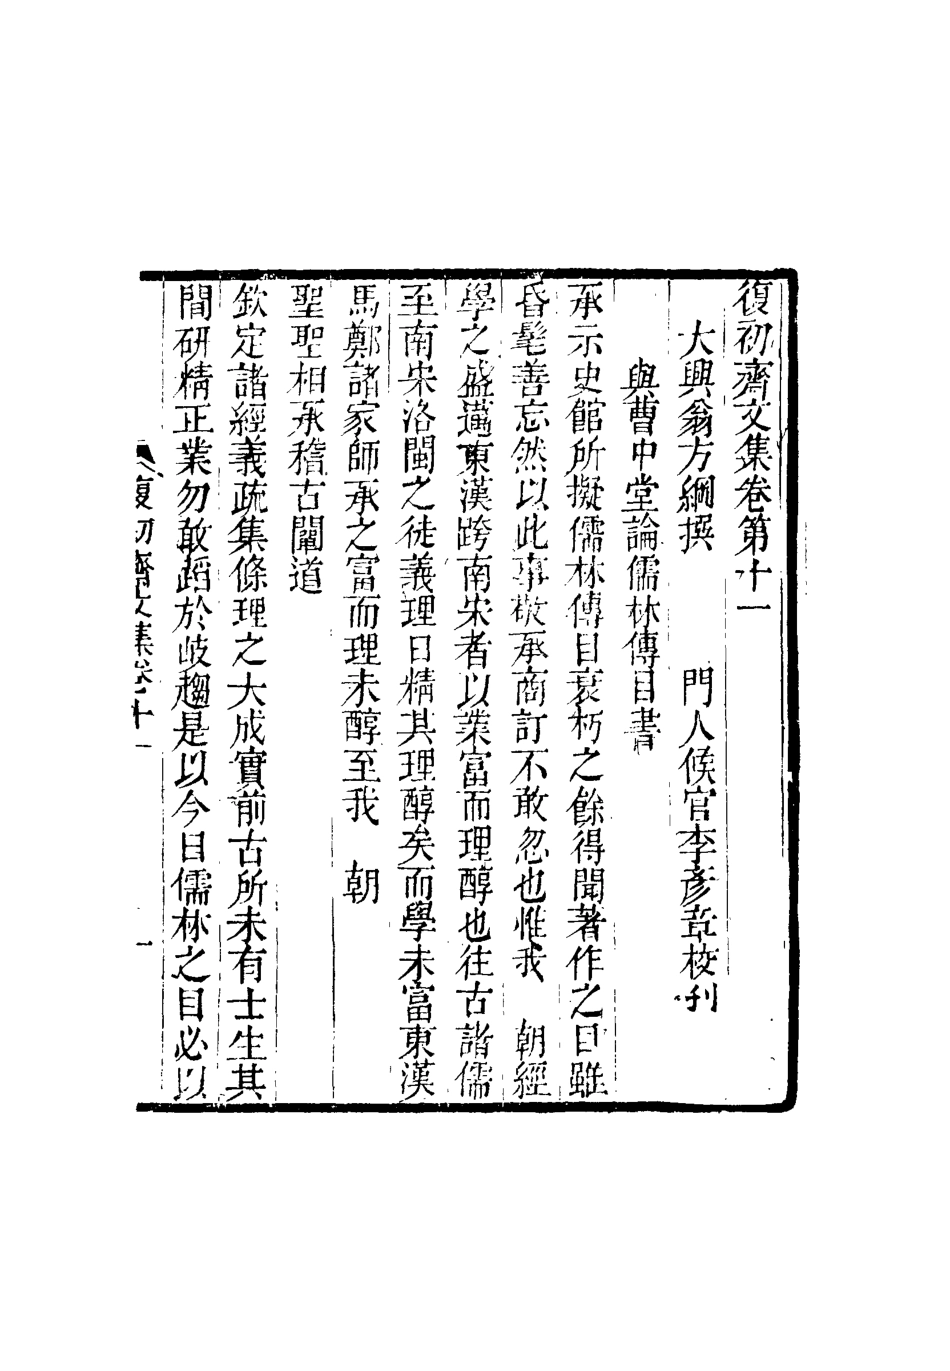 復初齋文集卷第十一
大興翁方綱撰　門人候官李彥章校刋
與曹中堂論儒林傳目書
承示史館所擬儒林傳目衰朽之餘得聞著作之目雖
昏髦善忘然以此事敬承商訂不敢忽也惟我　朝經
學之盛邁東漢跨南宋者以業富而理醇也往古諸儒
至南宋洛閩之徒義理日精其理醇矣而學未富東漢
馬鄭諸家師承之富而理未醇至我　朝
聖聖相承稽古闡道
欽定諸經義疏集條理之大成實前古所未有士生其
間研精正業勿敢蹈於歧趨是以今日儒林之目必以
復初齋文集卷十一　一